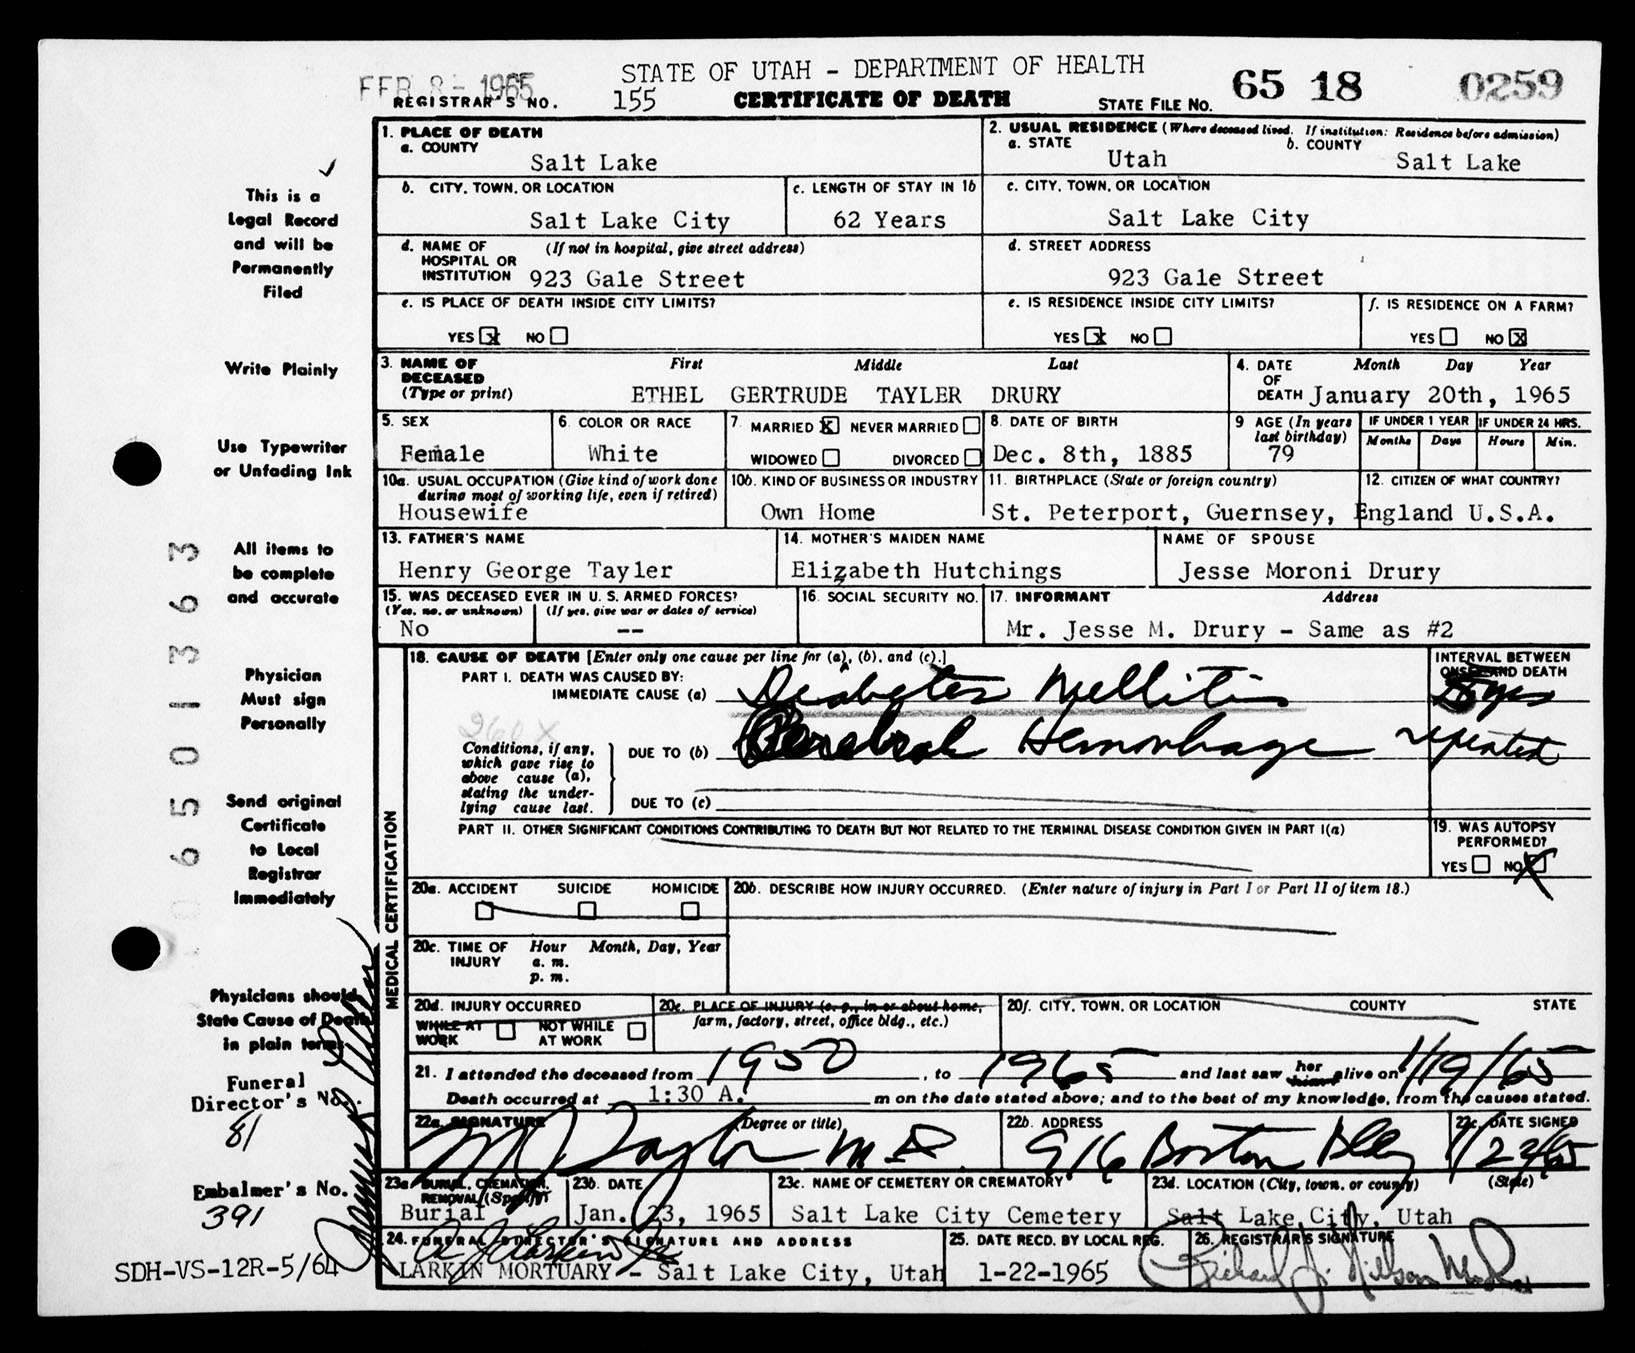 STATE OF UTAH - DEPARTMENT OF HEALTH
FEB 8 - 1965
REGISTRAR'S NO. 155 CERTIFICATE OF DEATH STATE FILE NO. 65 18 0259
1. PLACE OF DEATH
a. COUNTY
Salt Lake
2. USUAL RESIDENCE (Where deceased lived. If institution: Residence before admission)
a. STATE Utah b. COUNTY Salt Lake
b. CITY, TOWN, OR LOCATION
Salt Lake City
c. LENGTH OF STAY IN 1b
62 Years
c. CITY, TOWN, OR LOCATION
Salt Lake City
d. NAME OF HOSPITAL OR INSTITUTION (If not in hospital, give street address)
923 Gale Street
d. STREET ADDRESS
923 Gale Street
e. IS PLACE OF DEATH INSIDE CITY LIMITS?
YES X NO
e. IS RESIDENCE INSIDE CITY LIMITS?
YES X NO
f. IS RESIDENCE ON A FARM?
YES NO X
3. NAME OF DECEASED (Type or print)
First Middle Last
ETHEL GERTRUDE TAYLER DRURY
4. DATE OF DEATH Month Day Year
January 20th, 1965
5. SEX
Female
6. COLOR OR RACE
White
7. MARRIED X NEVER MARRIED
WIDOWED DIVORCED
8. DATE OF BIRTH
Dec. 8th, 1885
9 AGE (In years last birthday)
79
IF UNDER 1 YEAR
Months Days
IF UNDER 24 HRS.
Hours Min.
10a. USUAL OCCUPATION (Give kind of work done during most of working life, even if retired)
Housewife
10b. KIND OF BUSINESS OR INDUSTRY
Own Home
11. BIRTHPLACE (State or foreign country)
St. Peterport, Guernsey, England
12. CITIZEN OF WHAT COUNTRY?
U.S.A.
13. FATHER'S NAME
Henry George Tayler
14. MOTHER'S MAIDEN NAME
Elizabeth Hutchings
NAME OF SPOUSE
Jesse Moroni Drury
15. WAS DECEASED EVER IN U. S. ARMED FORCES?
(Yes, no, or unknown) (If yes, give war or dates of service)
No --
16. SOCIAL SECURITY NO.
17. INFORMANT Address
Mr. Jesse M. Drury - Same as #2
MEDICAL CERTIFICATION
18. CAUSE OF DEATH [Enter only one cause per line for (a), (b), and (c).]
INTERVAL BETWEEN ONSET AND DEATH
PART I. DEATH WAS CAUSED BY:
IMMEDIATE CAUSE (a) Diabetes Mellitis yrs
260X
Conditions, if any, which gave rise to above cause (a), stating the underlying cause last.
DUE TO (b) Cerebral Hemorrhage repeated
DUE TO (c)
PART II. OTHER SIGNIFICANT CONDITIONS CONTRIBUTING TO DEATH BUT NOT RELATED TO THE TERMINAL DISEASE CONDITION GIVEN IN PART I(a)
19. WAS AUTOPSY PERFORMED?
YES NO X
20a. ACCIDENT SUICIDE HOMICIDE
20b. DESCRIBE HOW INJURY OCCURRED. (Enter nature of injury in Part I or Part II of item 18.)
20c. TIME OF INJURY Hour Month, Day, Year
a. m.
p. m.
20d. INJURY OCCURRED
WHILE AT WORK NOT WHILE AT WORK
20e. PLACE OF INJURY (e. g., in or about home, farm, factory, street, office bldg., etc.)
20f. CITY, TOWN, OR LOCATION COUNTY STATE
21. I attended the deceased from 1950, to 1965 and last saw her him alive on 1/19/65
Death occurred at 1:30 A. m on the date stated above; and to the best of my knowledge, from the causes stated.
22a. SIGNATURE (Degree or title)
M J Taylor M D.
22b. ADDRESS
916 Boston Bldg
22c. DATE SIGNED
1/22/65
23a BURIAL, CREMATION, REMOVAL (Specify)
Burial
23b. DATE
Jan. 23, 1965
23c. NAME OF CEMETERY OR CREMATORY
Salt Lake City Cemetery
23d. LOCATION (City, town, or county) (State)
Salt Lake City, Utah
24. FUNERAL DIRECTOR'S SIGNATURE AND ADDRESS
LARKIN MORTUARY - Salt Lake City, Utah
25. DATE RECD. BY LOCAL REG.
1-22-1965
26. REGISTRAR'S SIGNATURE
Richard J. Nilson
This is a
Legal Record
and will be
Permanently
Filed
Write Plainly
Use Typewriter
or Unfading Ink
All items to
be complete
and accurate
Physician
Must sign
Personally
Send original
Certificate
to Local
Registrar
Immediately
Physicians should
State Cause of Death
in plain terms
Funeral
Director's No.
81
Embalmer's No.
391
SDH-VS-12R-5/64
0 6 5 0 1 3 6 3